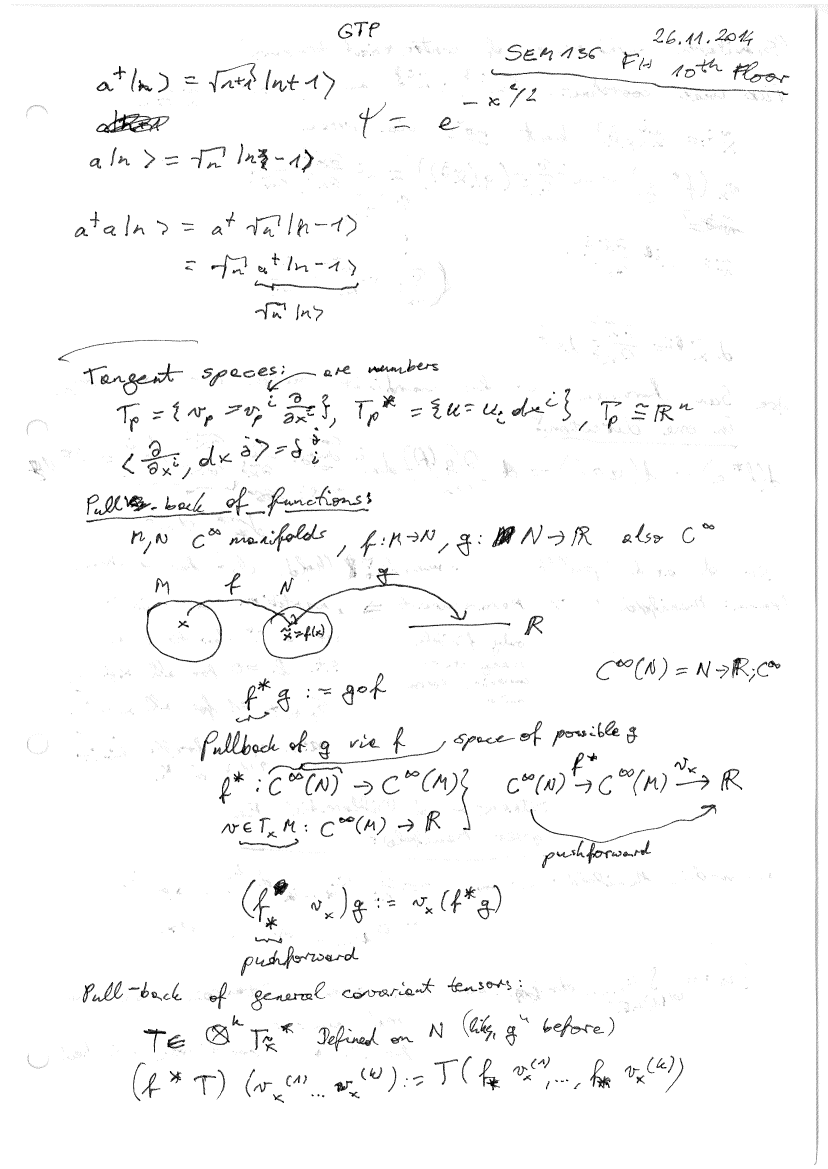 GTP
26.11.2014
SEM 136 FH 10th Floor
a†|n⟩ = √(n+1) |n+1⟩
ψ = e^(-x²/2)
a|n⟩ = √n |n-1⟩
a†a|n⟩ = a† √n |n-1⟩
= √n a†|n-1⟩
√n |n⟩
Tangent spaces: are numbers
T_p = {v_p = v_p^i ∂/∂x^i}, T_p* = {u = u_i dx^i}, T_p ≅ ℝ^n
⟨∂/∂x^i, dx^j⟩ = δ_i^j
Pull-back of functions:
M, N C^∞ manifolds, f: M→N, g: N→ℝ also C^∞
M f N g
x x̃=f(x) ℝ
C^∞(N) = N→ℝ; C^∞
f* g := g∘f
Pullback of g via f, space of possible g
f* : C^∞(N) → C^∞(M)} C^∞(N) →^(f*) C^∞(M) →^(v_x) ℝ
v∈T_x M : C^∞(M) → ℝ
pushforward
(f_* v_x)g := v_x(f*g)
pushforward
Pull-back of general covariant tensors:
T∈ ⊗^k T_x̃* Defined on N (like „g“ before)
(f* T)(v_x^(1) ... v_x^(k)) := T(f_* v_x^(1), ..., f_* v_x^(k))